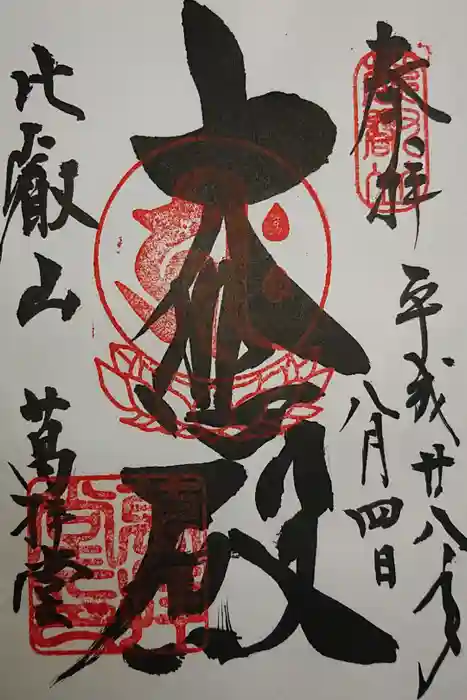 奉拝
平成廿八年
八月四日
大佛殿
比叡山 萬拝堂